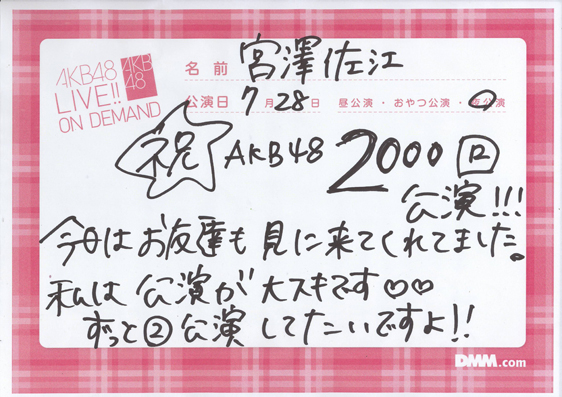 AKB48
LIVE!!
ON DEMAND
AKB
48
名前 宮澤佐江
公演日 7月28日 昼公演・おやつ公演・夜公演
祝 AKB48 2000回
公演!!!
今日はお友達も見に来てくれてました。
私は公演が大スキです♡♡
ずっと②公演してたいですよ!!
DMM.com